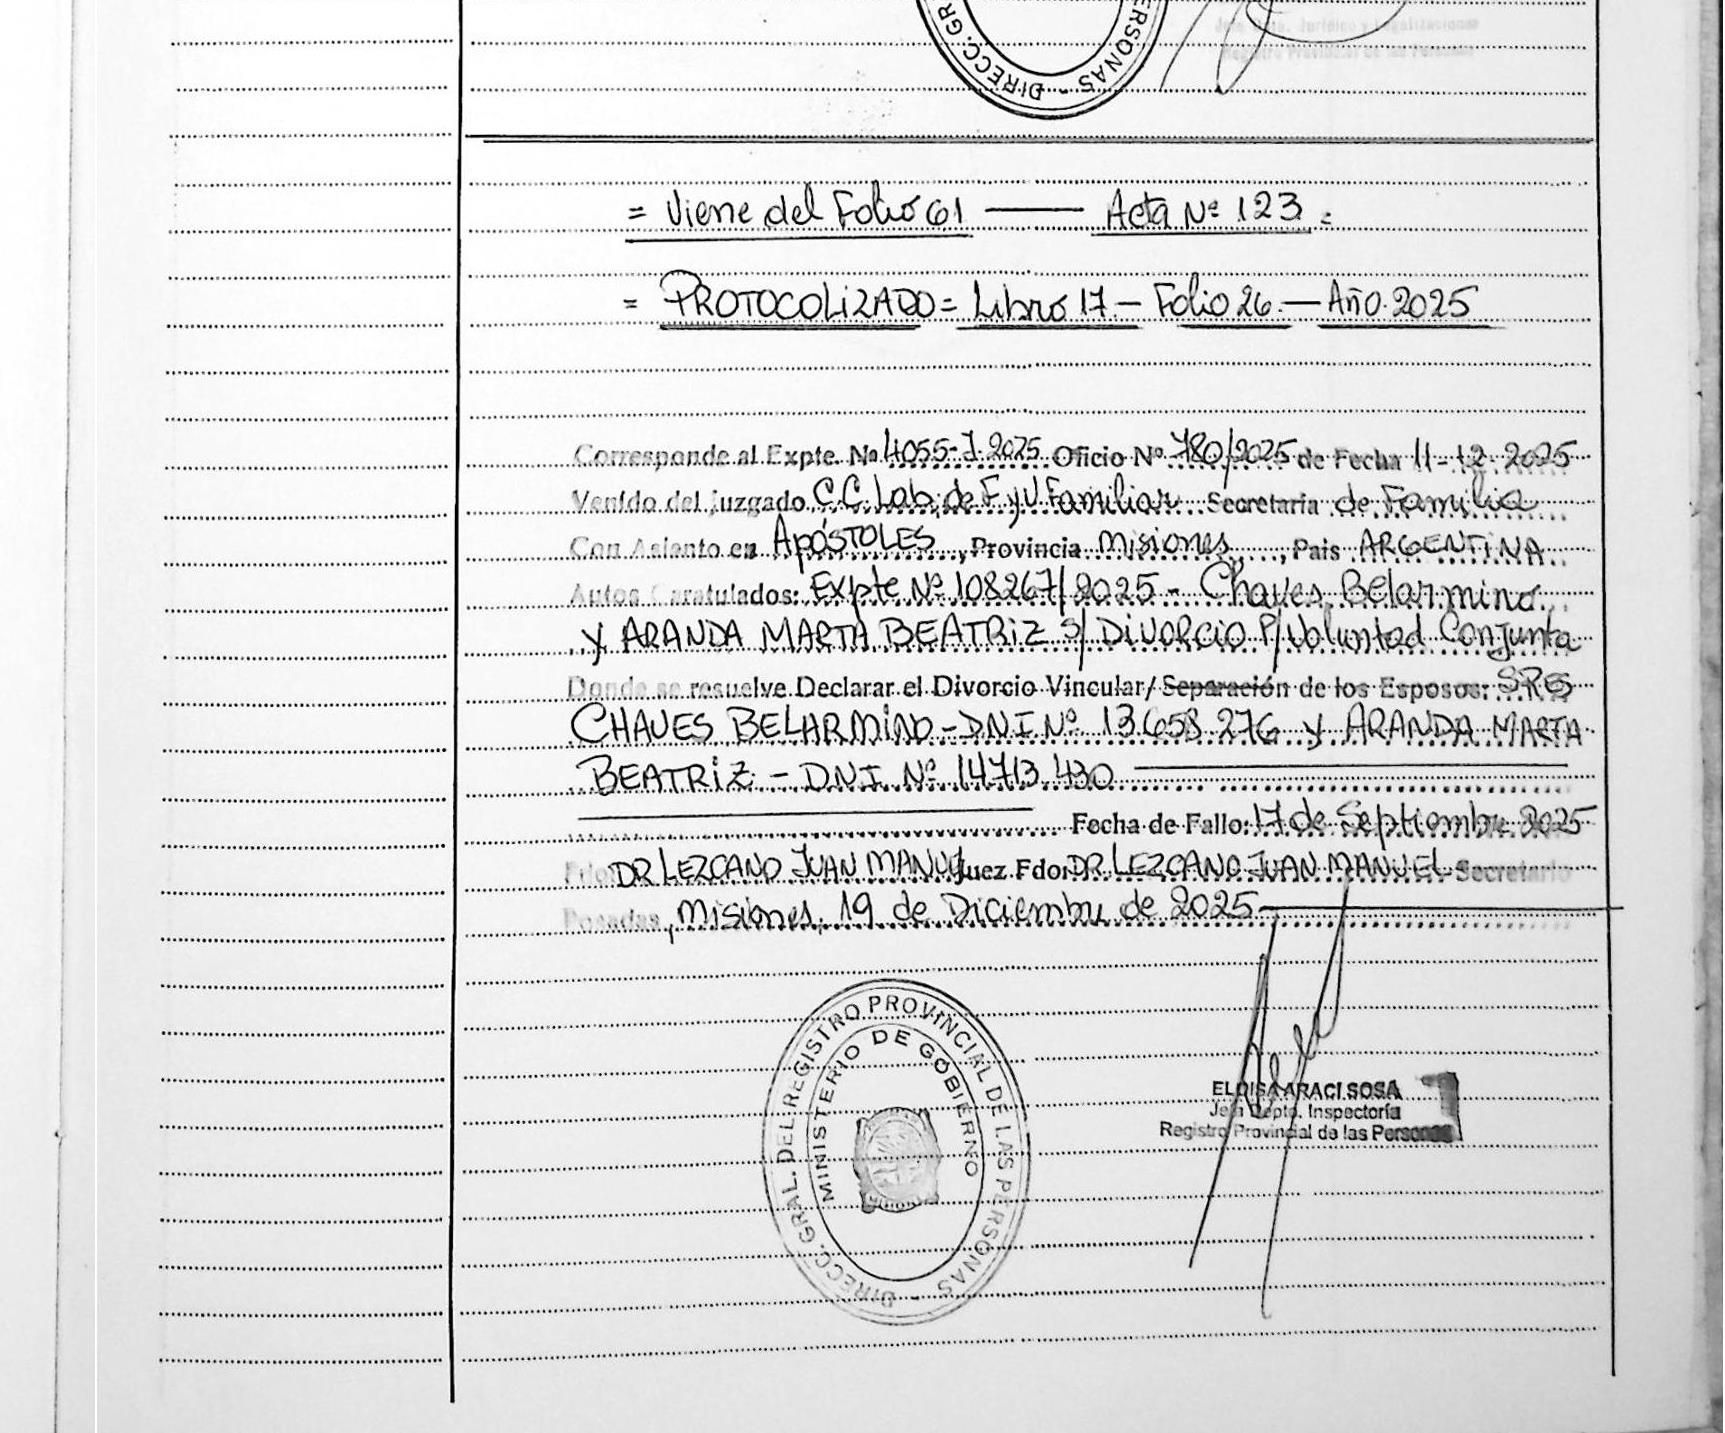 DIRECC. GR
ERSONAS -
Jefa Dpto. Jurídico y Legalizaciones
Registro Provincial de las Personas
= Viene del Folio 61 —— Acta Nº 123 =
= PROTOCOLIZADO = Libro 17 - Folio 26 - Año 2025
Corresponde al Expte. Nº 4055-J-2025 Oficio Nº 780/2025 de Fecha 11-12-2025
Venido del juzgado C.C. Lab. de F y V. Familiar Secretaria de Familia
Con Asiento en APÓSTOLES, Provincia Misiones, Pais ARGENTINA
Autos Caratulados: Expte Nº 108267/2025 - Chaves, Belarmino
y ARANDA MARTA BEATRIZ S/ DIVORCIO P/ Voluntad Conjunta
Donde se resuelve Declarar el Divorcio Vincular/ Separación de los Esposos: SRES
CHAVES BELARMINO - DNI Nº 13.658.276 y ARANDA MARTA
BEATRIZ - D.N.I. Nº 14.713.430
Fecha de Fallo: 17 de Septiembre 2025
Fdo: DR LEZCANO JUAN MANUEL Juez Fdo: DR LEZCANO JUAN MANUEL Secretario
Posadas, Misiones, 19 de Diciembre de 2025
DIRECC. GRAL. DEL REGISTRO PROVINCIAL DE LAS PERSONAS -
MINISTERIO DE GOBIERNO
ELOISA ARACI SOSA
Jefa Dpto. Inspectoría
Registro Provincial de las Personas